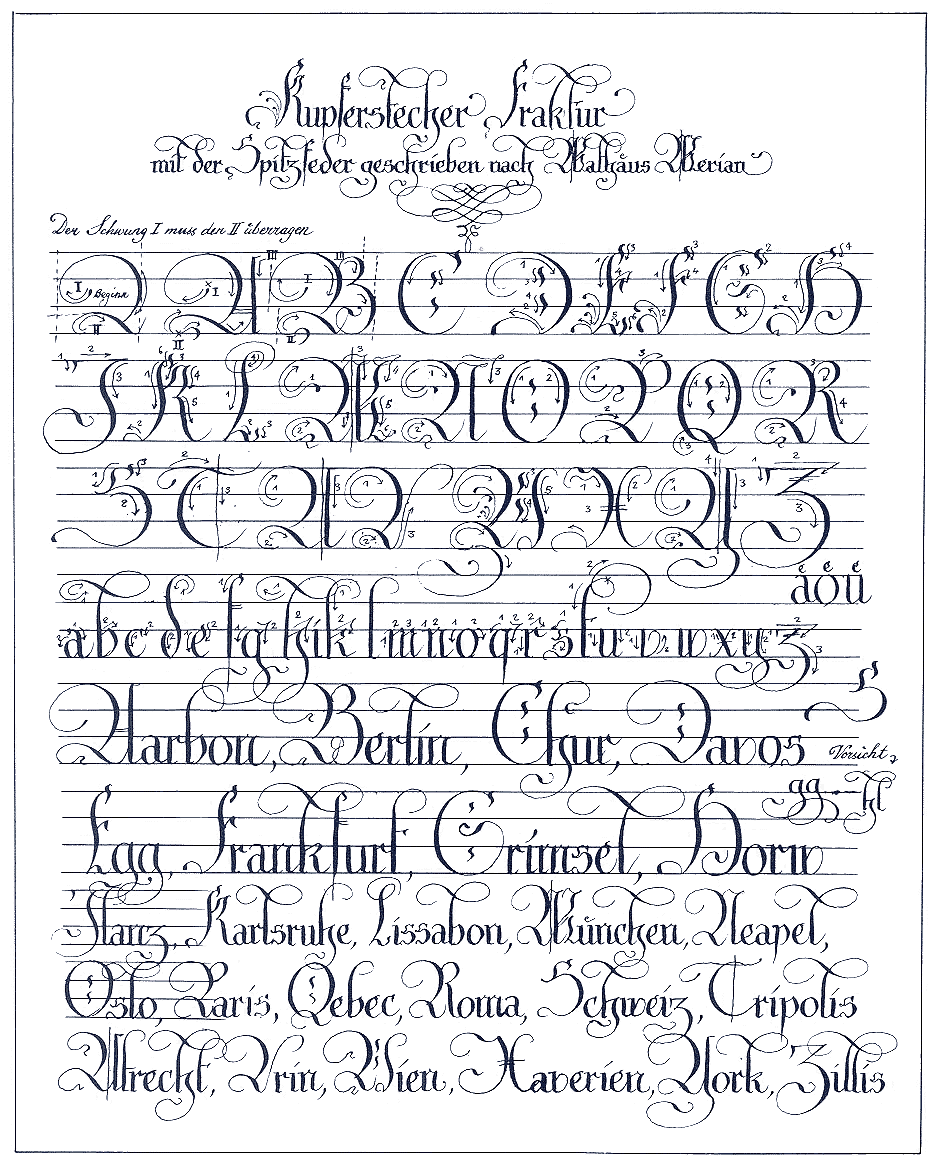 Kupferstecher Fraktur
mit der Spitzfeder geschrieben nach Mathäus Merian
Der Schwung I muss den II überragen
I Beginn II A B C D E F G H
J K L M N O P Q R
S T U V W X Y Z
ä ö ü
a b c d e f g h i k l m n o q r s t u v w x y z
S
Aarbon, Berlin, Chur, Davos
Vorsicht
gg - hl
Egg, Frankfurt, Grimsel, Horw
Ilanz, Karlsruhe, Lissabon, München, Neapel,
Oslo, Paris, Qebec, Roma, Schweiz, Tripolis
Utrecht, Vrin, Wien, Xaverien, York, Zillis